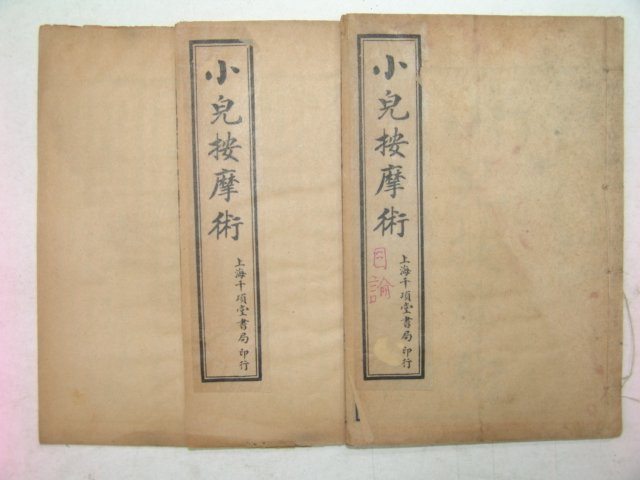 小兒按摩術
諭
上海千頃堂書局印行
小兒按摩術
上海千頃堂書局印行